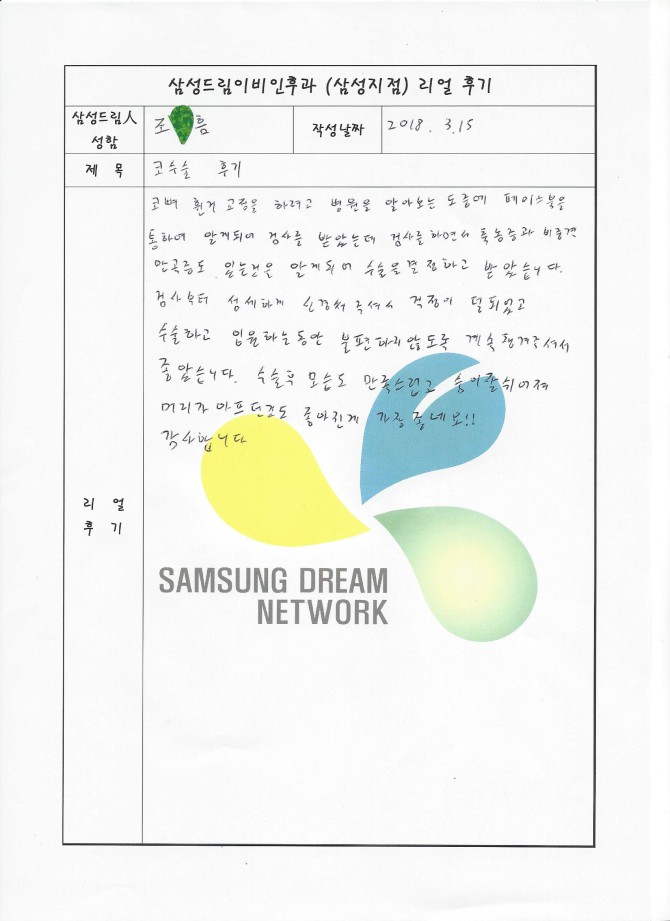 삼성드림이비인후과 (삼성지점) 리얼 후기
삼성드림人
성함
조 름
작성날짜
2018. 3.15
제 목
코수술 후기
코뼈 휜거 교정을 하려고 병원을 알아보는 도중에 페이스북을
통하여 알게되어 검사를 받았는데 검사를 하면서 축농증과 비중격
만곡증도 있는것을 알게되어 수술을 결정하고 받았습니다.
검사부터 섬세하게 신경써 주셔서 걱정이 덜되었고
수술하고 입원하는동안 불편하지않도록 계속챙겨주셔서
좋았습니다. 수술후 모습도 만족스럽고 숨이잘쉬어져
머리가 아프던것도 좋아진게 가장 좋네요!!
감사합니다
리 얼
후 기
SAMSUNG DREAM
NETWORK